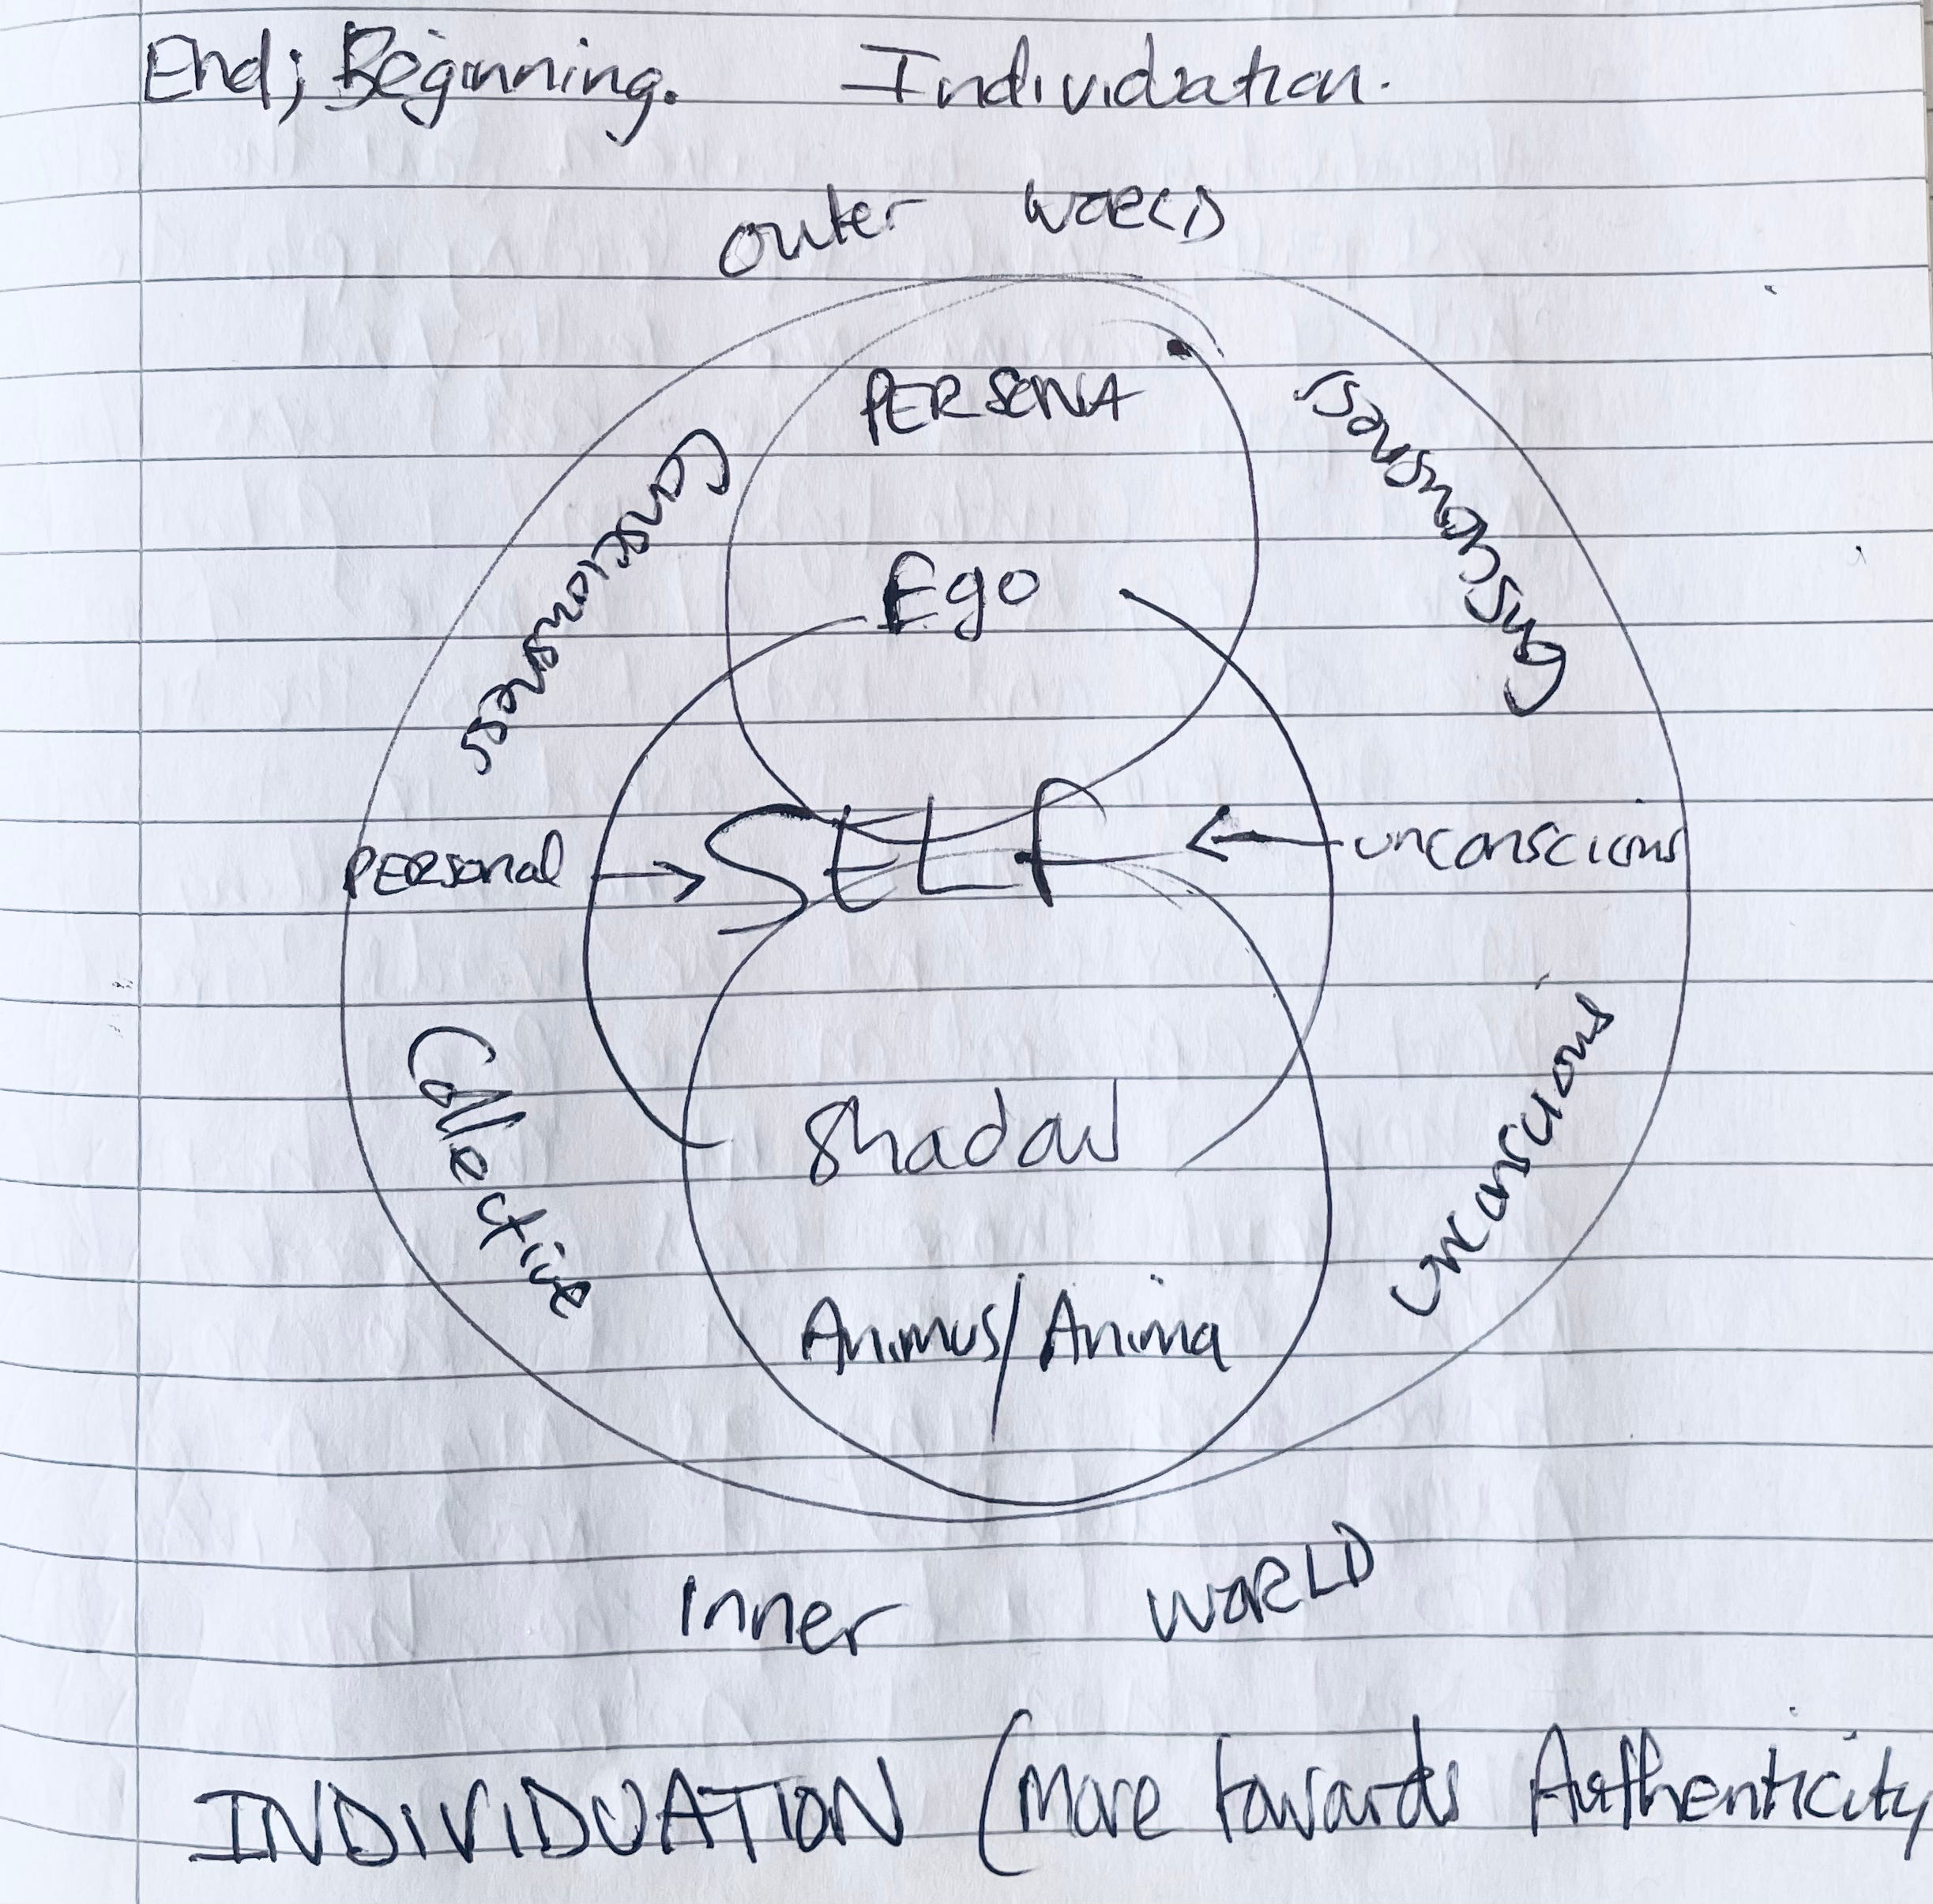 End; Beginning. Individuation.
Outer WORLD
PERSONA
Consciousness
Consciousness
Ego
PERSonal → SELF ← unconscious
Collective
unconscious
Shadow
Animus/Anima
Inner WORLD
INDIVIDUATION (More towards Authenticity